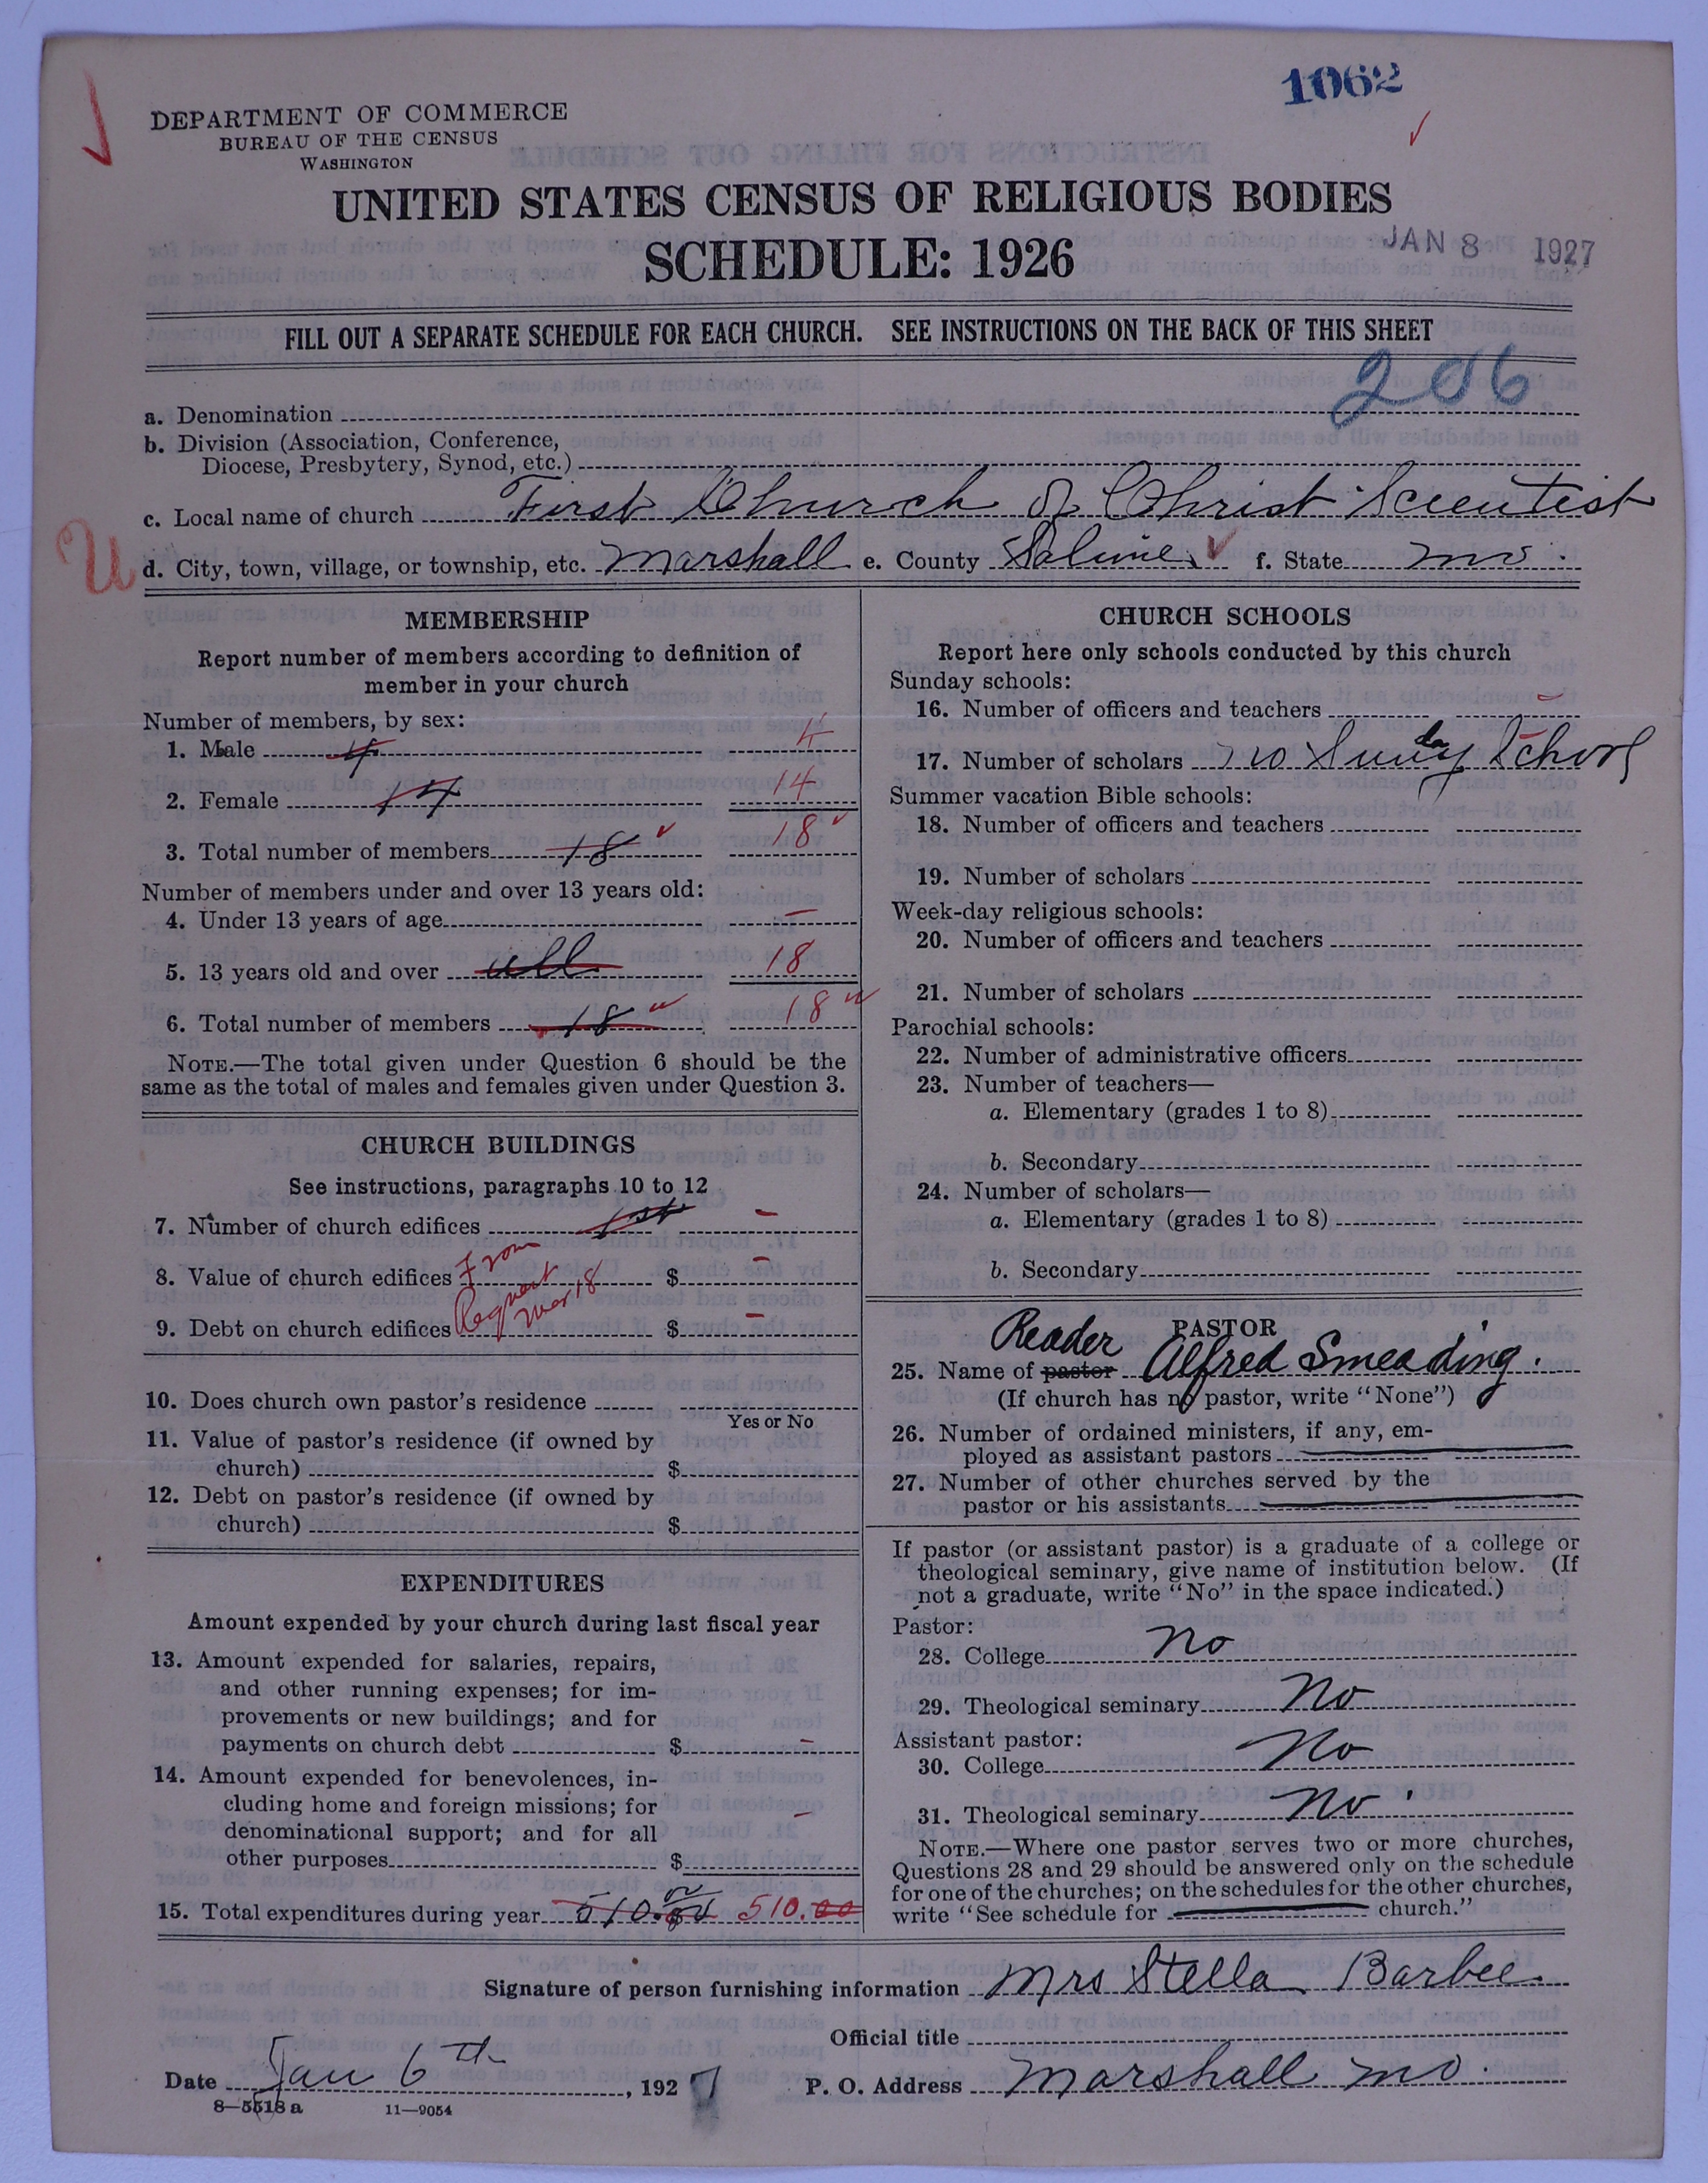 1062
DEPARTMENT OF COMMERCE
BUREAU OF THE CENSUS
WASHINGTON
UNITED STATES CENSUS OF RELIGIOUS BODIES
SCHEDULE: 1926
JAN 8 1927
FILL OUT A SEPARATE SCHEDULE FOR EACH CHURCH. SEE INSTRUCTIONS ON THE BACK OF THIS SHEET
206
a. Denomination
b. Division (Association, Conference,
Diocese, Presbytery, Synod, etc.)
c. Local name of church First Church of Christ Scientist
U
d. City, town, village, or township, etc. Marshall e. County Saline f. State Mo.
MEMBERSHIP
Report number of members according to definition of
member in your church
Number of members, by sex:
1. Male 4 4
2. Female 14 14
3. Total number of members 18 18
Number of members under and over 13 years old:
4. Under 13 years of age –
5. 13 years old and over all 18
6. Total number of members 18 18
NOTE.—The total given under Question 6 should be the
same as the total of males and females given under Question 3.
CHURCH BUILDINGS
See instructions, paragraphs 10 to 12
7. Number of church edifices 1st –
From
8. Value of church edifices $ –
Request
Mar 18
9. Debt on church edifices $ –
10. Does church own pastor's residence
Yes or No
11. Value of pastor's residence (if owned by
church) $
12. Debt on pastor's residence (if owned by
church) $
EXPENDITURES
Amount expended by your church during last fiscal year
13. Amount expended for salaries, repairs,
and other running expenses; for im-
provements or new buildings; and for
payments on church debt $ –
14. Amount expended for benevolences, in-
cluding home and foreign missions; for
denominational support; and for all
other purposes $ –
15. Total expenditures during year 510.00 510.00
CHURCH SCHOOLS
Report here only schools conducted by this church
Sunday schools:
16. Number of officers and teachers –
17. Number of scholars no Sunday School
Summer vacation Bible schools:
18. Number of officers and teachers
19. Number of scholars
Week-day religious schools:
20. Number of officers and teachers
21. Number of scholars
Parochial schools:
22. Number of administrative officers
23. Number of teachers—
a. Elementary (grades 1 to 8)
b. Secondary
24. Number of scholars—
a. Elementary (grades 1 to 8)
b. Secondary
PASTOR
Reader
25. Name of pastor Alfred Smeading.
(If church has no pastor, write "None")
26. Number of ordained ministers, if any, em-
ployed as assistant pastors
27. Number of other churches served by the
pastor or his assistants
If pastor (or assistant pastor) is a graduate of a college or
theological seminary, give name of institution below. (If
not a graduate, write "No" in the space indicated.)
Pastor:
28. College no
29. Theological seminary No
Assistant pastor:
30. College No
31. Theological seminary No.
NOTE.—Where one pastor serves two or more churches,
Questions 28 and 29 should be answered only on the schedule
for one of the churches; on the schedules for the other churches,
write "See schedule for church."
Signature of person furnishing information Mrs Stella Barbee.
Official title
Date Jan 6th, 1927 P. O. Address Marshall Mo.
8—5518 a 11—9054